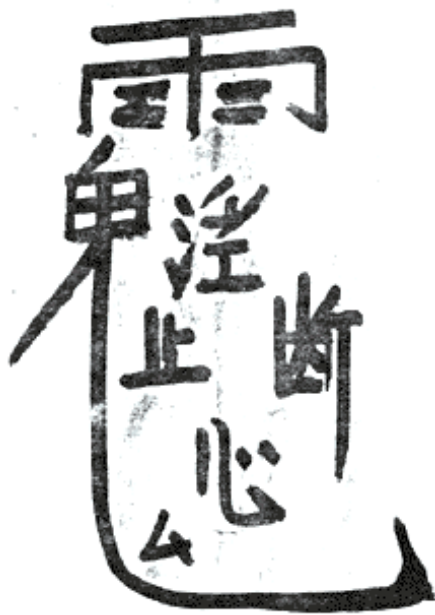 雨
鬼
淫
止 断
心